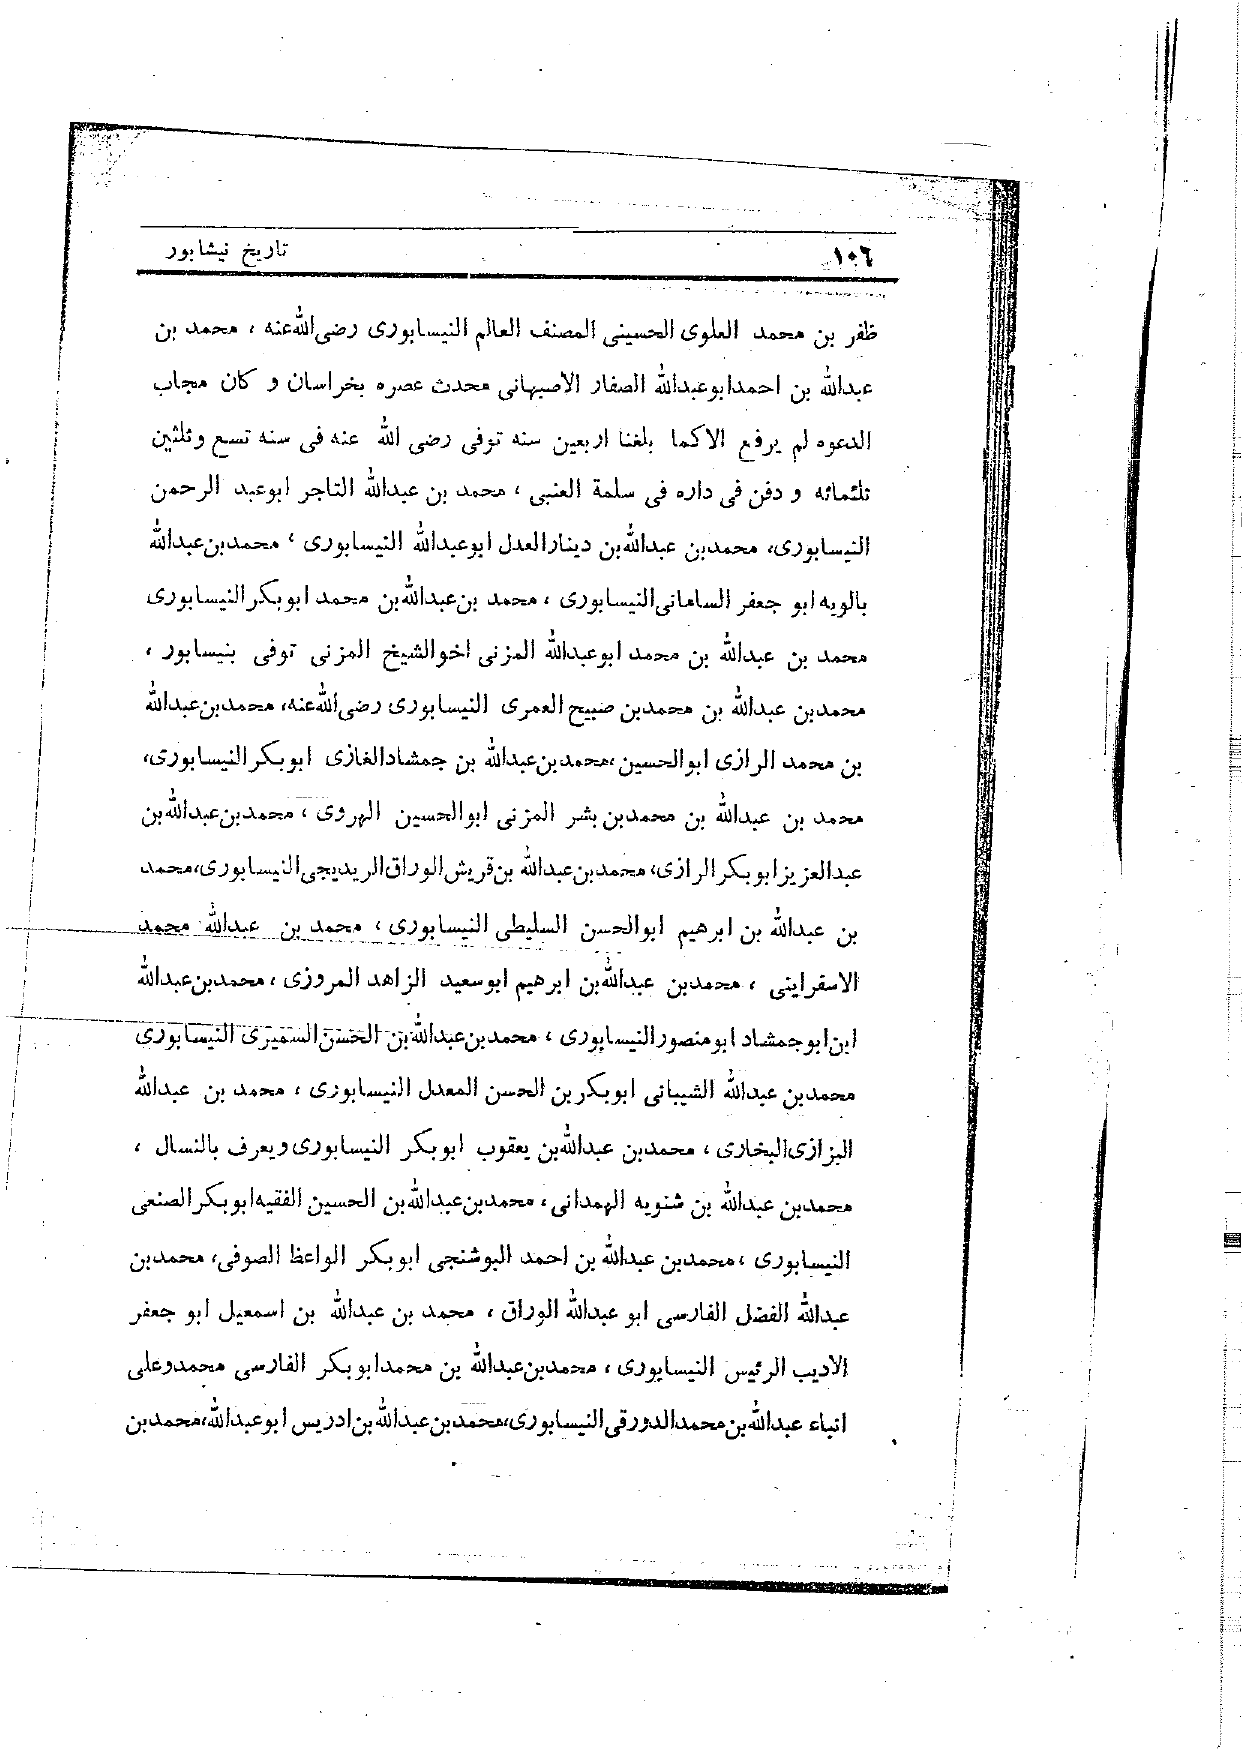 ١٠٦ تاريخ نيشابور
ظفر بن محمد العلوى الحسينى المصنف العالم النيسابورى رضى‌الله‌عنه ، محمد بن
عبدالله بن احمدابوعبدالله الصفار الاصبهانى محدث عصره بخراسان و كان مجاب
الدعوه لم يرفع الاكما بلغنا اربعين سنه توفى رضى الله عنه فى سنه تسع وثلثين
ثلثمائه و دفن فى داره فى سلمة العنبى ، محمد بن عبدالله التاجر ابوعبد الرحمن
النيسابورى، محمدبن عبدالله‌بن دينارالعدل ابوعبدالله النيسابورى ، محمدبن‌عبدالله
بالويه ابو جعفر السامانى‌النيسابورى ، محمد بن‌عبدالله‌بن محمد ابوبكرالنيسابورى
محمد بن عبدالله بن محمد ابوعبدالله المزنى اخوالشيخ المزنى توفى بنيسابور ،
محمدبن عبدالله بن محمدبن صبيح‌العمرى النيسابورى رضى‌الله‌عنه، محمدبن‌عبدالله
بن محمد الرازى ابوالحسين ،محمدبن‌عبدالله بن جمشادالغازى ابوبكرالنيسابورى،
محمد بن عبدالله بن محمدبن‌بشر المزنى ابوالحسين الهروى ، محمدبن‌عبدالله‌بن
عبدالعزيزابوبكرالرازى، محمدبن‌عبدالله بن‌قريش‌الوراق‌الريديجى‌النيسابورى،محمد
بن عبدالله بن ابرهيم ابوالحسن السليطى النيسابورى ، محمد بن عبدالله محمد
الاسفراينى ، محمدبن عبدالله‌بن ابرهيم ابوسعيد الزاهد المروزى ، محمدبن‌عبدالله
ابن‌ابوجمشاد ابومنصورالنيسابورى ، محمدبن‌عبدالله‌بن الحسن‌السميرى النيسابورى
محمدبن عبدالله الشيبانى ابوبكربن الحسن المعدل النيسابورى ، محمد بن عبدالله
البزازى‌البخارى ، محمدبن عبدالله‌بن يعقوب ابوبكر النيسابورى‌ويعرف بالنسال ،
محمدبن عبدالله بن شنويه الهمدانى ، محمدبن‌عبدالله‌بن الحسين الفقيه‌ابوبكرالصنعى
النيسابورى ،محمدبن عبدالله بن احمد البوشنجى ابوبكر الواعظ الصوفى، محمدبن
عبدالله الفضل الفارسى ابو عبدالله الوراق ، محمد بن عبدالله بن اسمعيل ابو جعفر
الاديب الرئيس النيسابورى ، محمدبن‌عبدالله بن محمدابوبكر الفارسى محمدوعلى
انباء عبدالله‌بن‌محمدالدورقى‌النيسابورى،محمدبن‌عبدالله‌بن‌ادريس ابوعبدالله،محمدبن